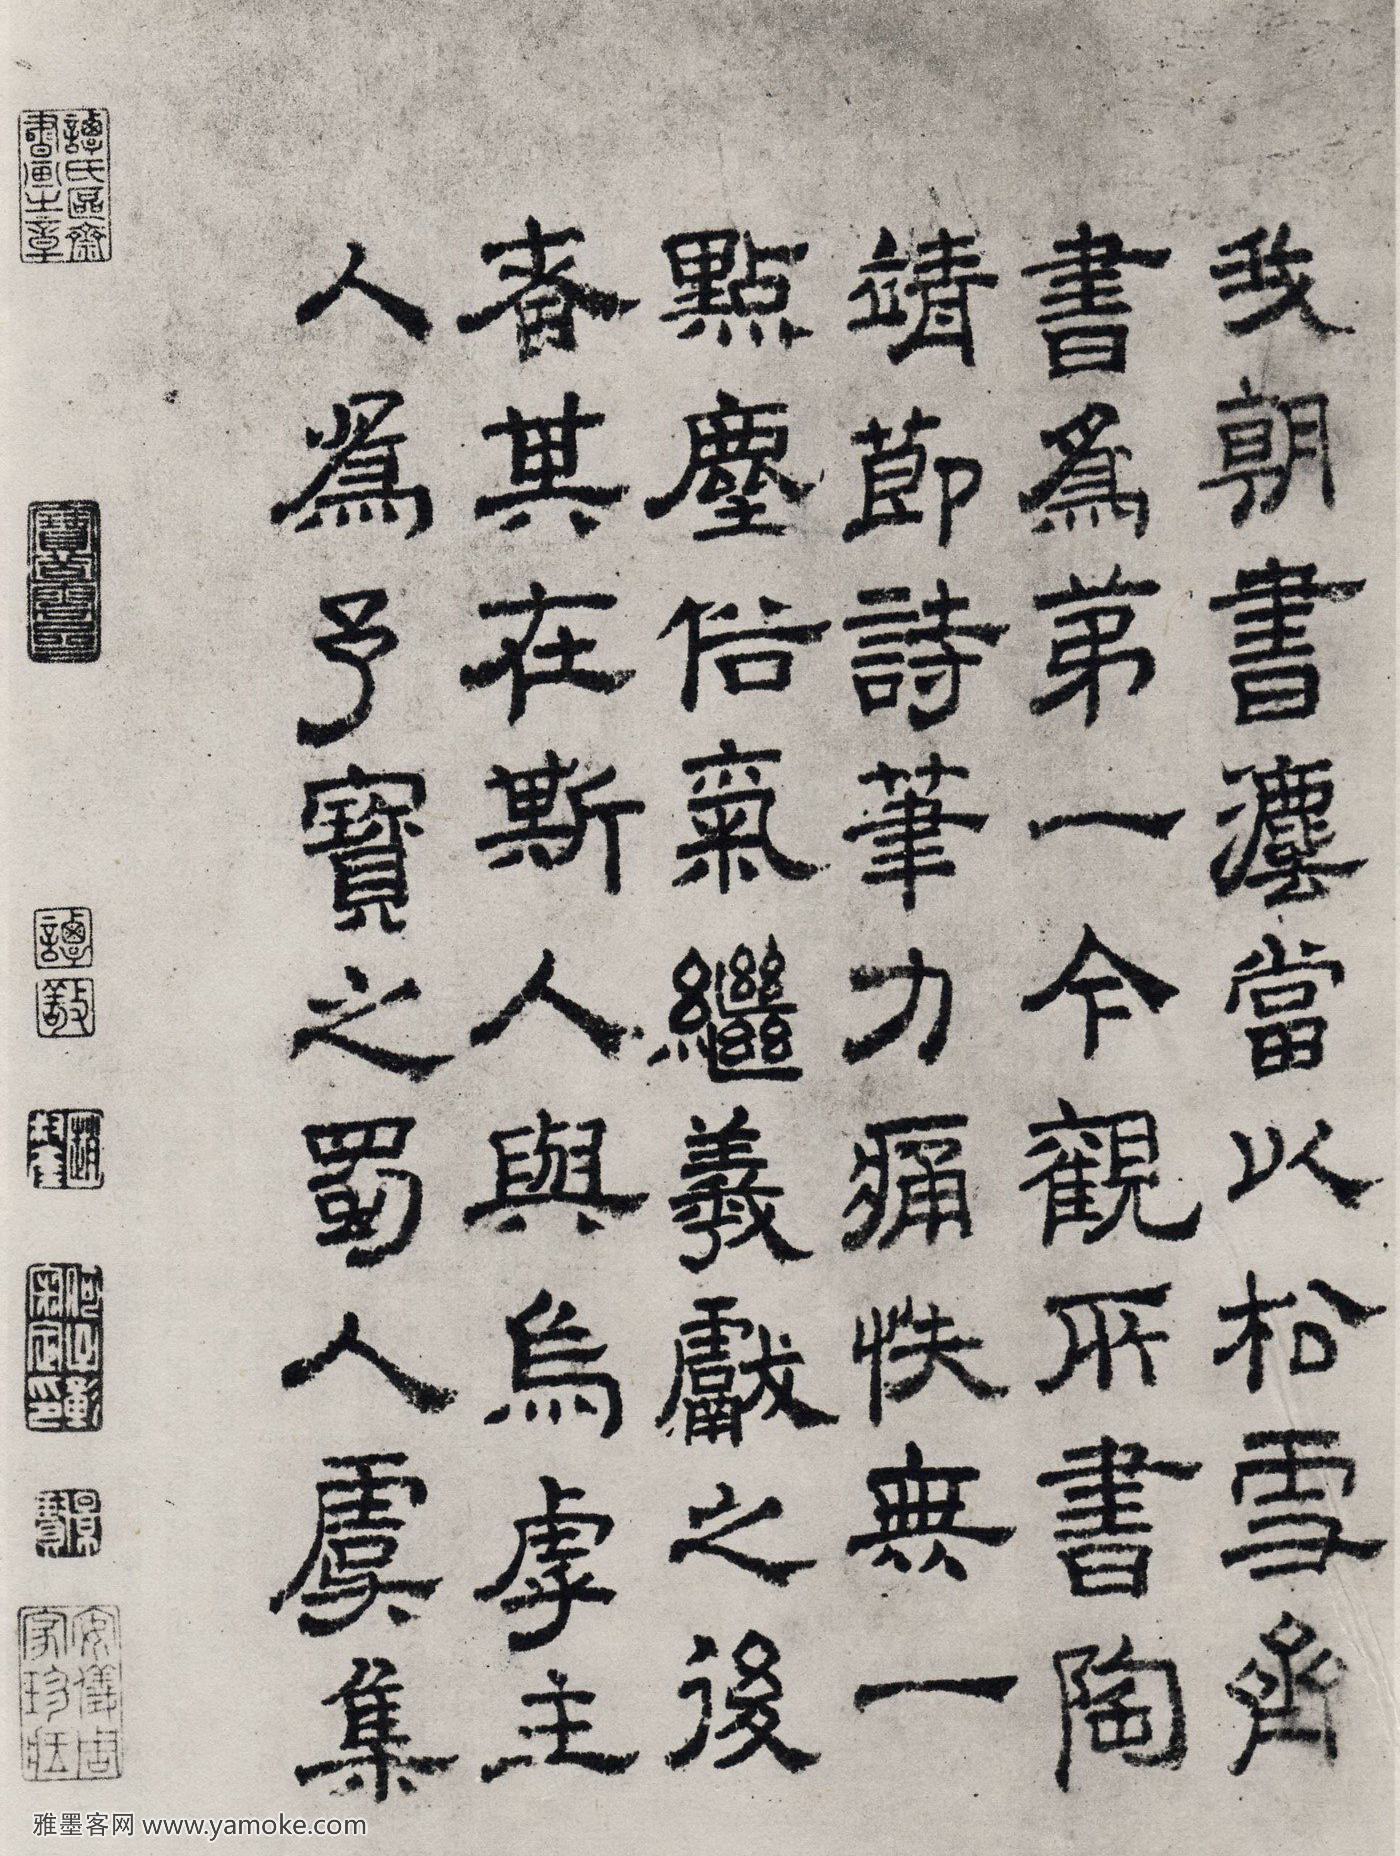 我朝書灋當以松雪齋
書爲弟一今觀所書陶
靖節詩筆力痛快無一
點塵俗氣繼羲獻之後
者其在斯人與烏虖主
人爲予寶之蜀人虞集
譚氏區齋書畫之章
譚敬
安儀周家珍藏
雅墨客网 www.yamoke.com